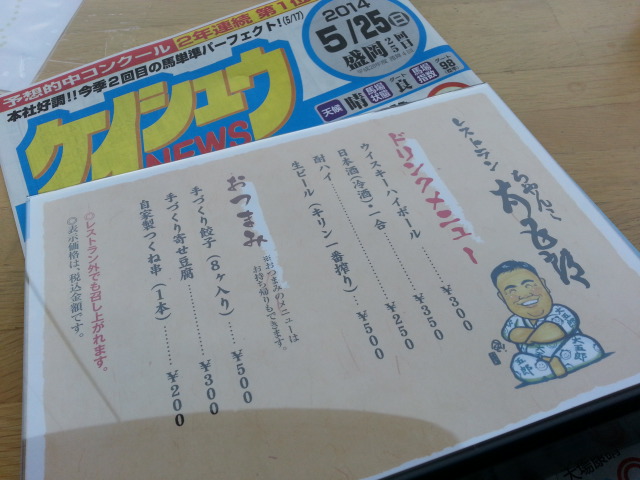 予想的中コンクール 2年連続 第1位
本社好調!!今季2回目の馬単準パーフェクト!(5/17)
ケイシュウ
NEWS
2014
5/25(日)
盛岡
天候 晴
馬場状態 良
馬場指数
98
レストラン
ちゃんこ
大五郎
ドリンクメニュー
ウィスキーハイボール……¥300
日本酒(冷酒)・一合……¥350
酎ハイ……¥250
生ビール(キリン一番搾り)……¥500
おつまみ
※おつまみのメニューは
お持ち帰りもできます。
手づくり餃子(8ヶ入り)……¥500
手づくり寄せ豆腐……¥300
自家製つくね串(1本)……¥200
◎レストラン外でも召し上がれます。
◎表示価格は、税込金額です。
大五郎
五郎